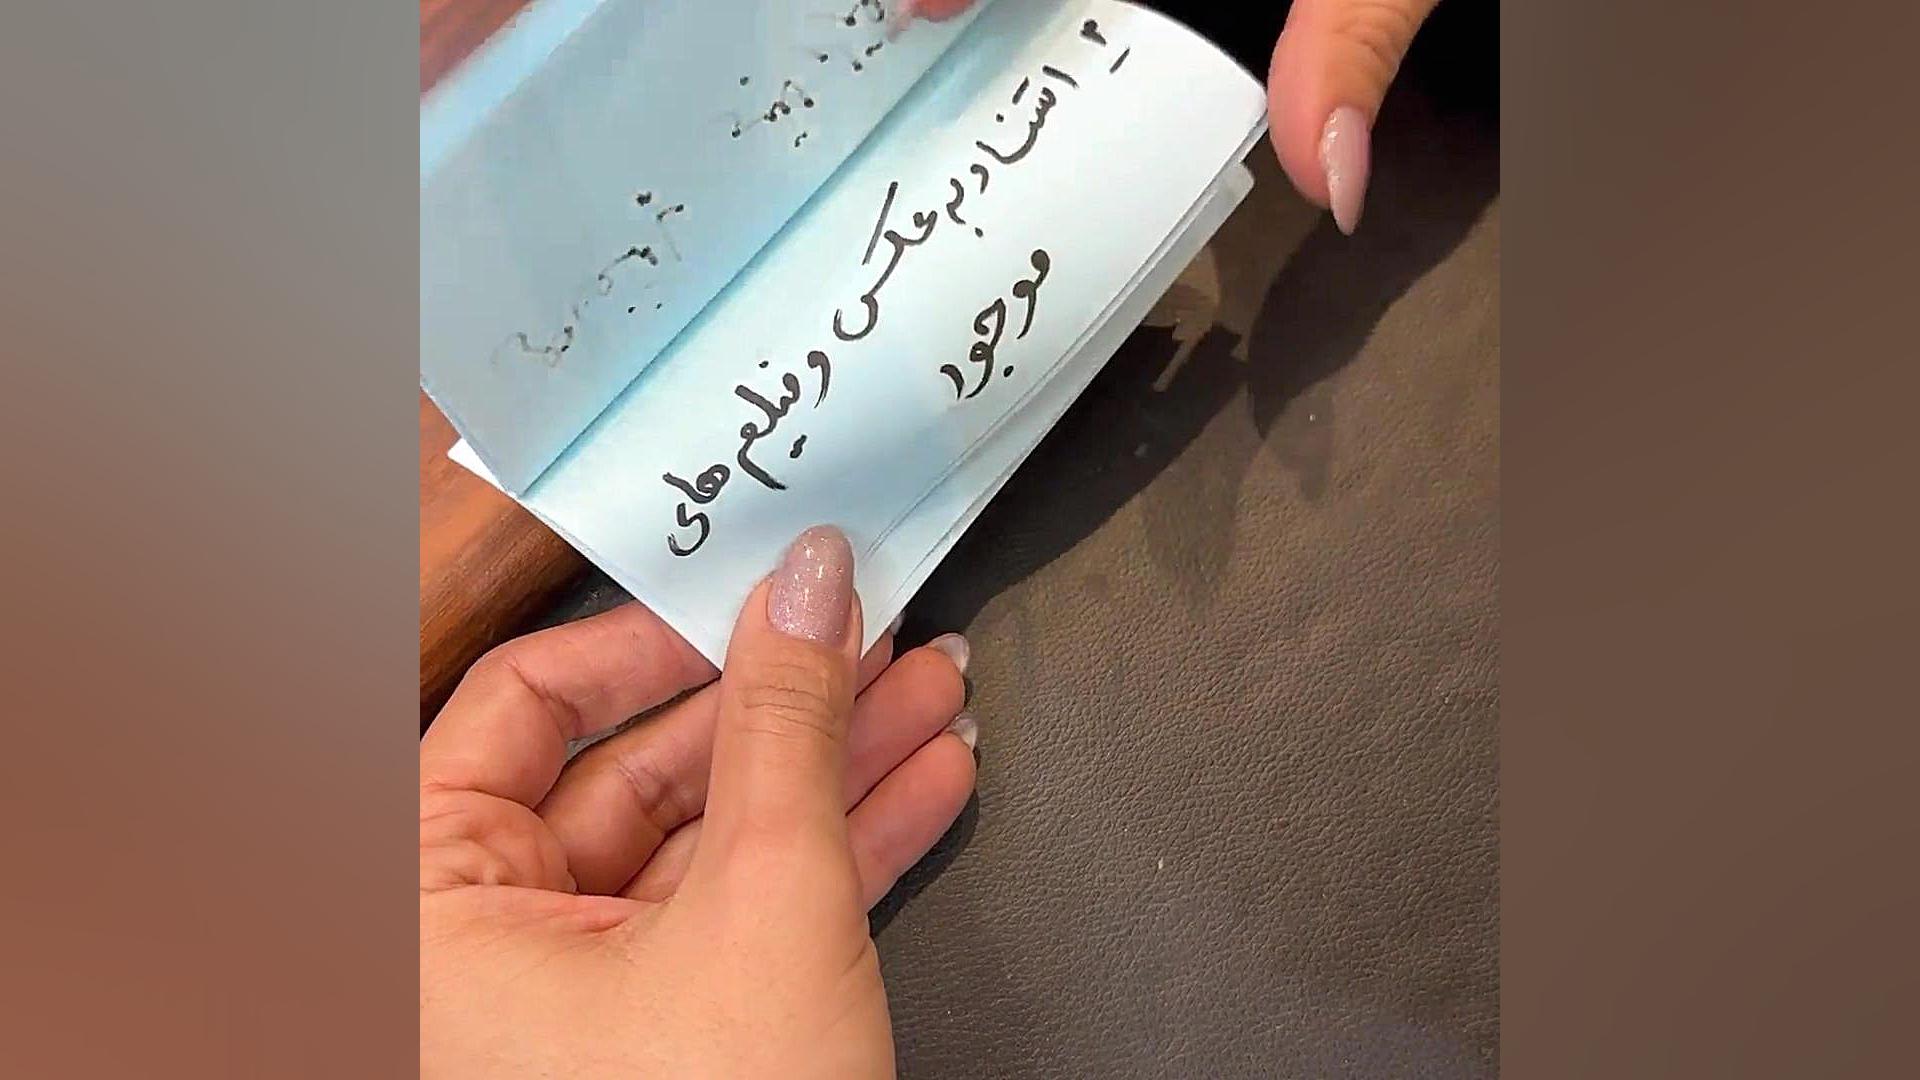 ۳- استناد به عکس و فیلم های
موجود